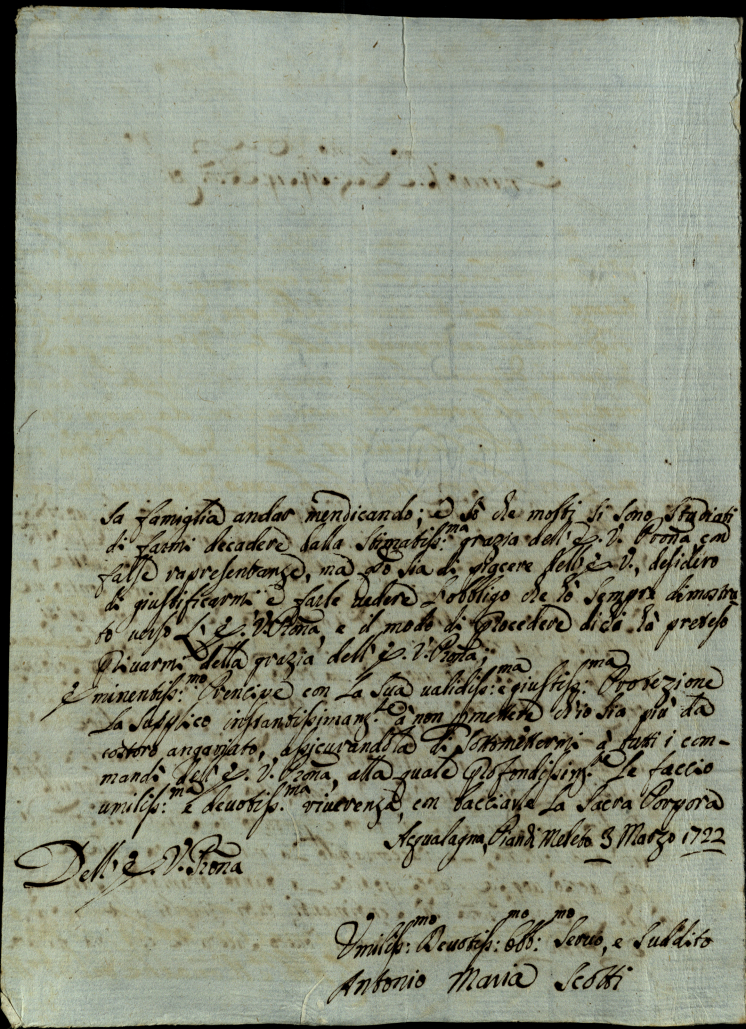 sa famiglia andar mendicando; e sò che molti si sono studiati
di farmi decadere dalla stimatiss:ma grazia dell' E. V. Proña con
false rapresentanze, ma se sia di piacere dell' E. V., desidero
di giustificarmi, e farle vedere l'obbligo che hò sempre dimostra
to verso L' E. V. Proña, e il modo di procedere di chi hà preteso
privarmi della grazia dell' E. V. Proña;
Eminentiss:mo Prencipe con La Sua validiss:ma e giustiss:ma Protezione
La supplico instantissimam:te à non permettere ch'io sia più da
costoro angariato, assicurandola di sottomettermi à tutti i com-
mandi dell' E. V. Proña, alla quale profondissim:te Le faccio
umiliss:ma e devotiss:ma riverenza, con bacciare La Sacra Porpora
Acqualagna, Piandimeleto 3 Marzo 1722
Dell' E. V. Proña
Umiliss:mo Devotiss:mo obb:mo Servo, e Suddito
Antonio Maria Scotti